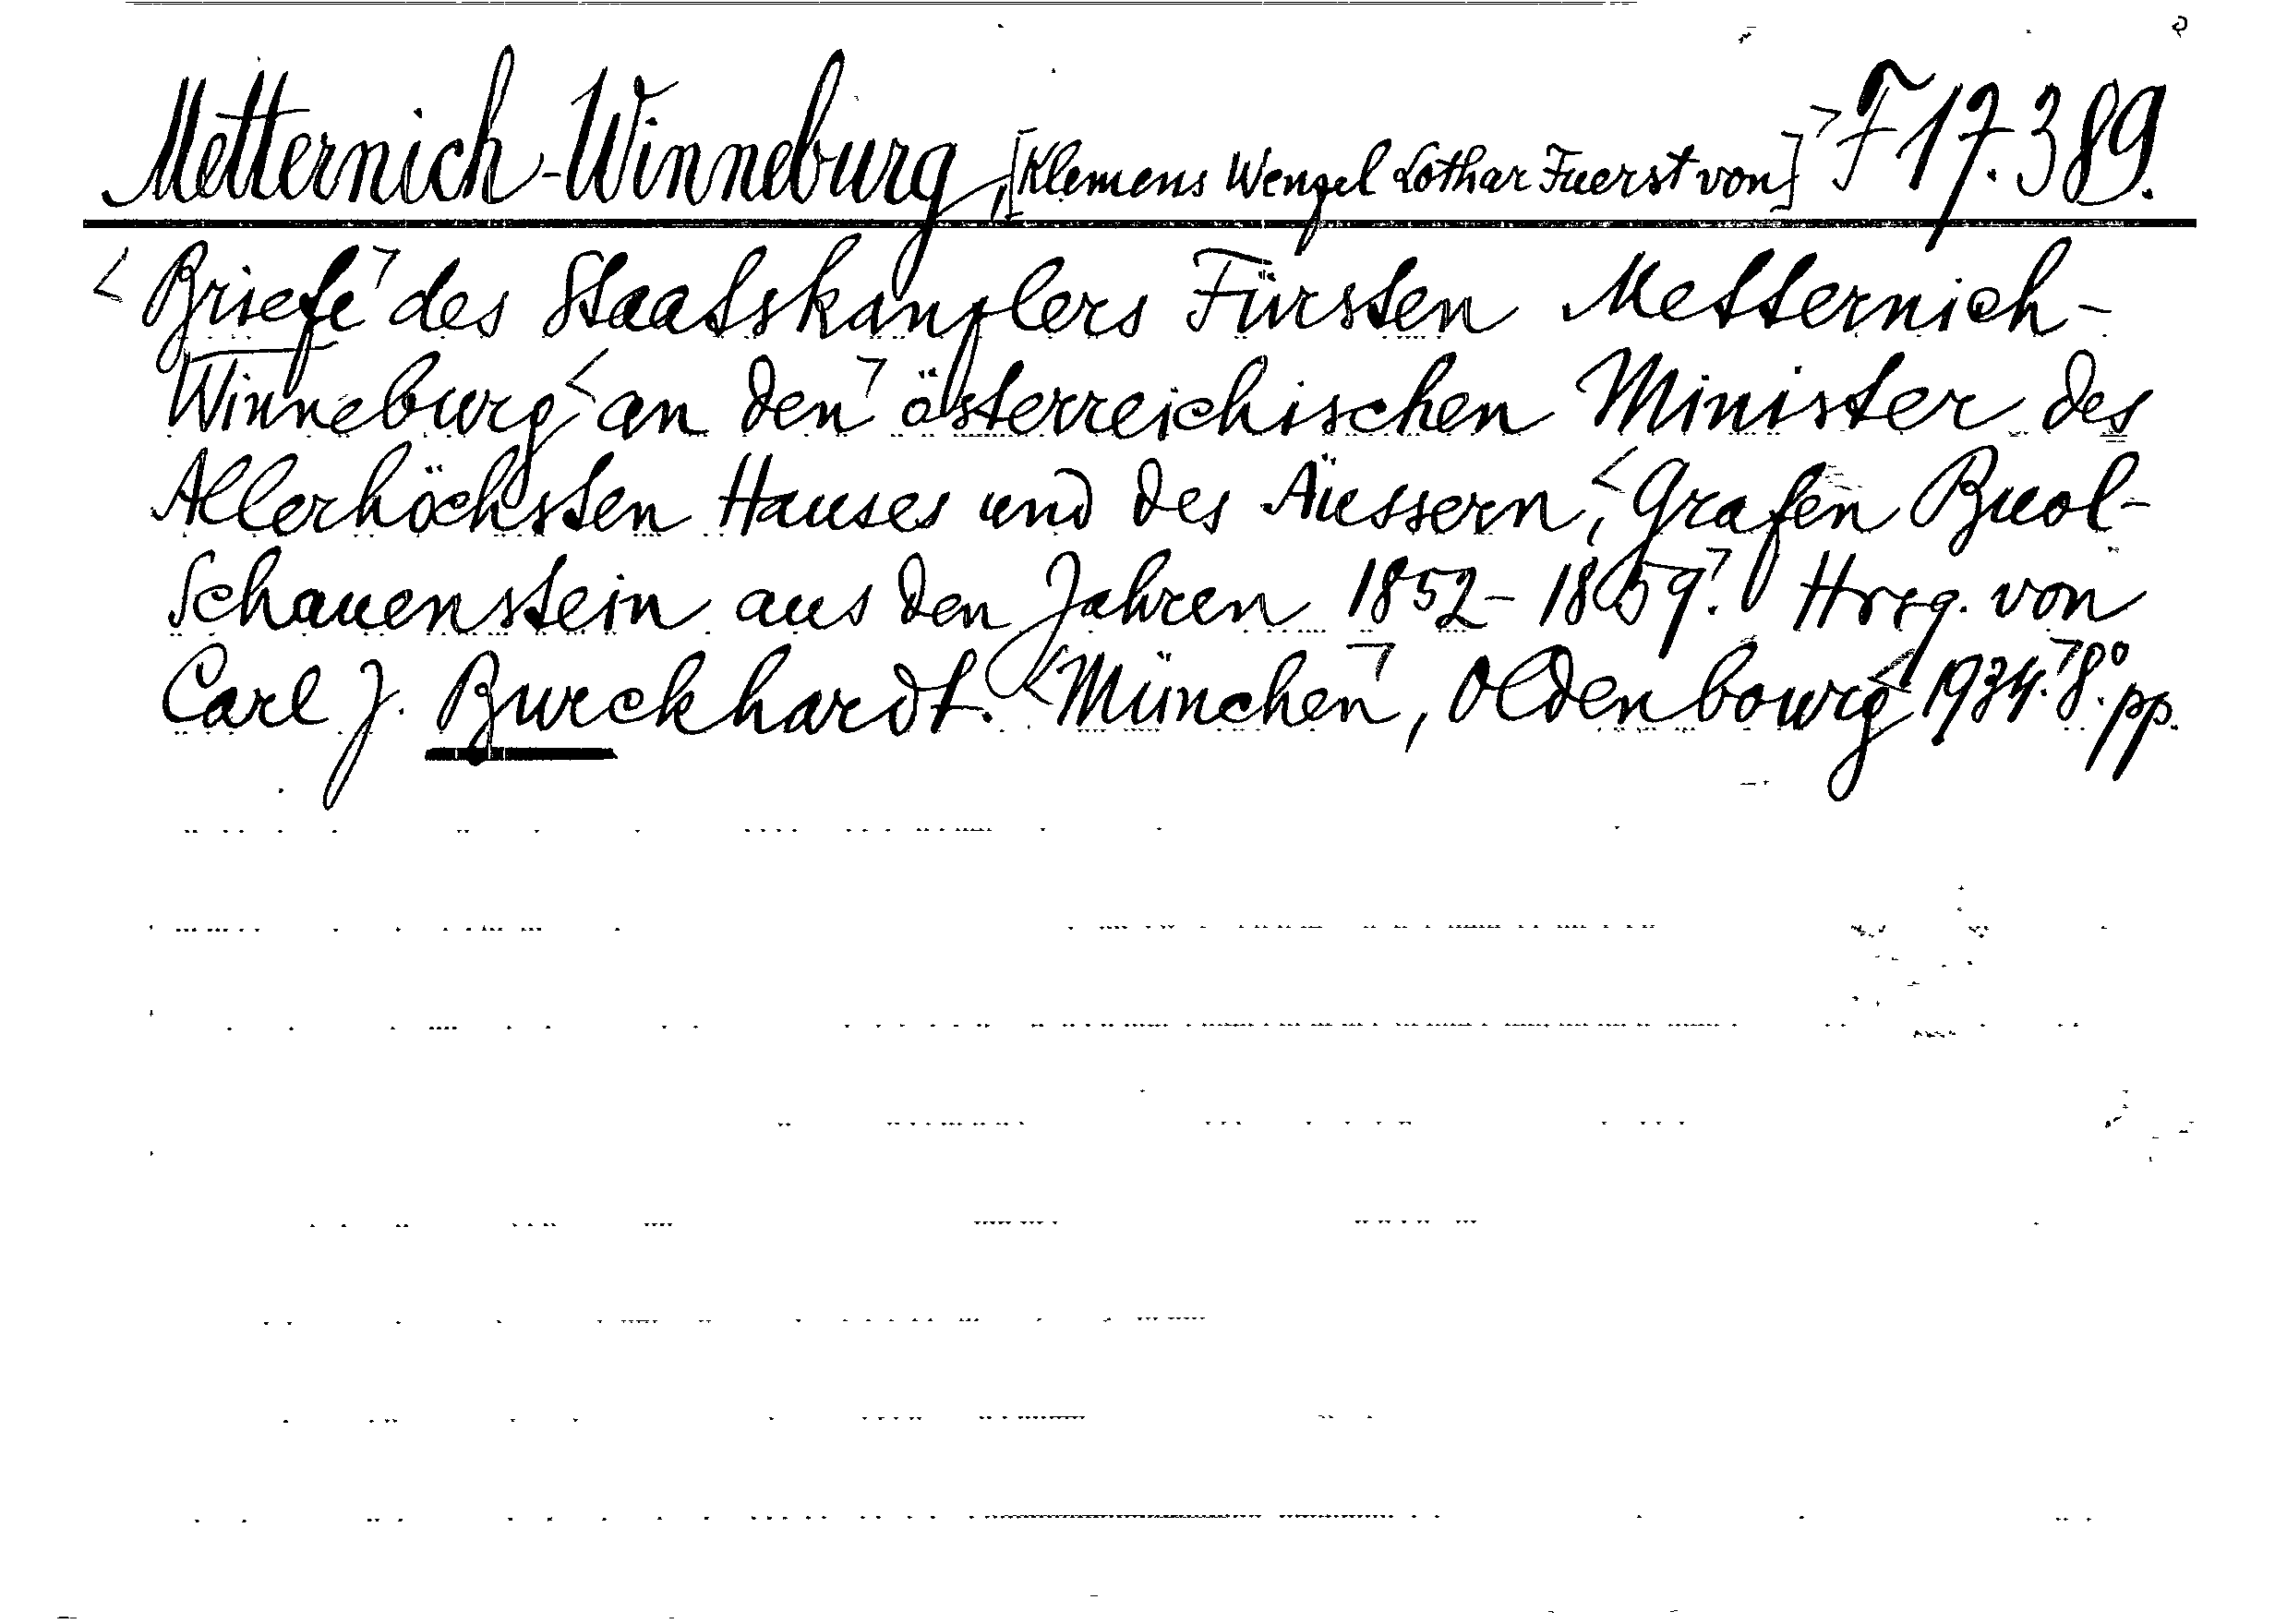 Metternich-Winneburg, [Klemens Wenzel Lothar Fuerst von] F 17.389.
Briefe des Staatskanzlers Fürsten Metternich-
Winneburg an den österreichischen Minister des
Allerhöchsten Hauses und des Äussern, Grafen Buol-
Schauenstein aus den Jahren 1852-1859. Hrsg. von
Carl J. Burckhardt. München, Oldenbourg 1934. 8°. pp.